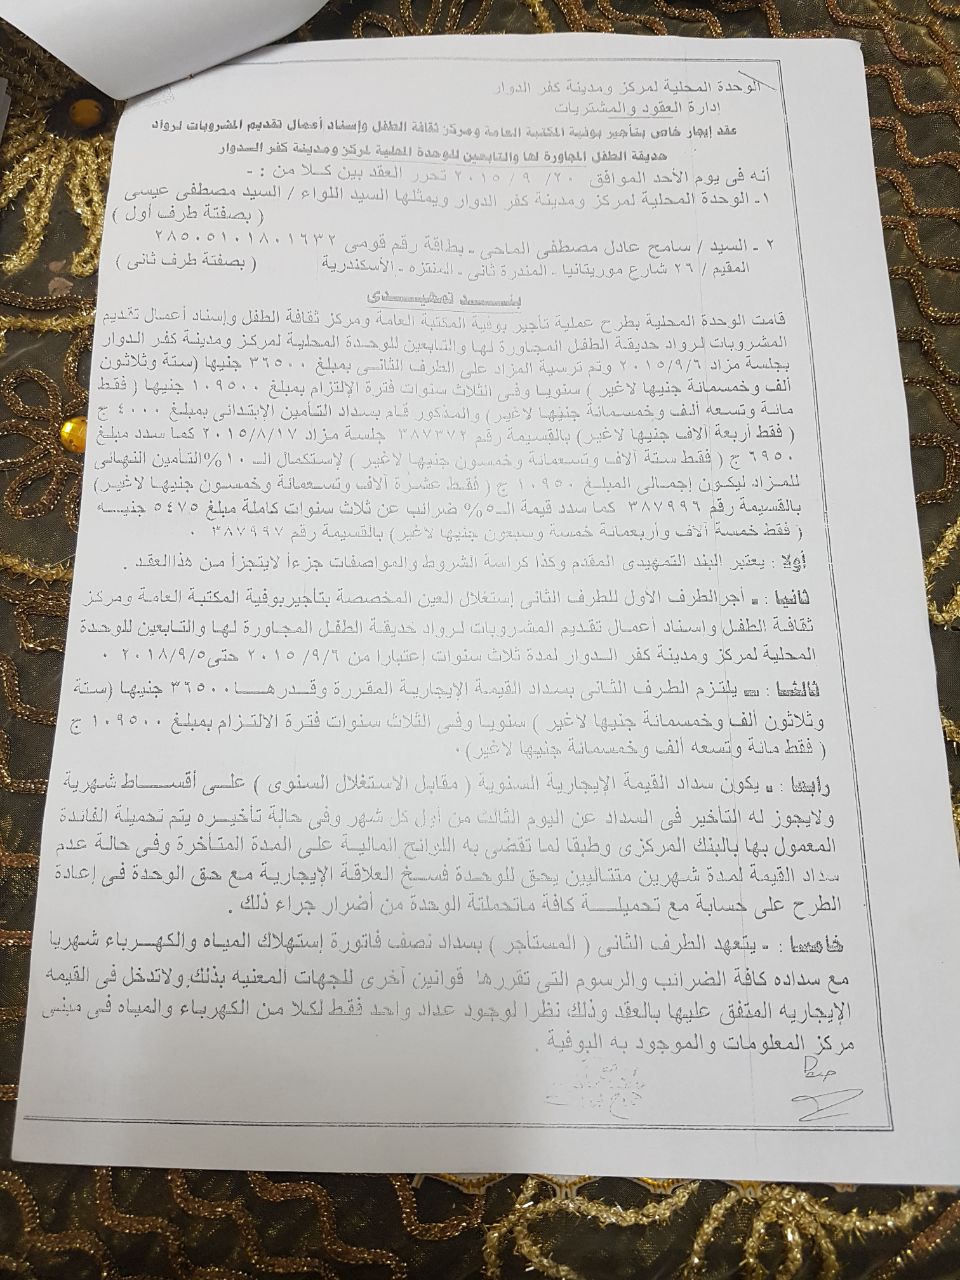 الوحدة المحلية لمركز ومدينة كفر الدوار
إدارة العقود والمشتريات
عقد إيجار خاص بتأجير بوفية المكتبة العامة ومركز ثقافة الطفل وإسناد أعمال تقديم المشروبات لرواد
حديقة الطفل المجاورة لها والتابعين للوحدة المحلية لمركز ومدينة كفر الدوار
أنه فى يوم الأحد الموافق ٢٠ / ٩ / ٢٠١٥ تحرر العقد بين كلا من : -
١ـ الوحدة المحلية لمركز ومدينة كفر الدوار ويمثلها السيد اللواء / السيد مصطفى عيسى
( بصفتة طرف أول )
٢ - السيد / سامح عادل مصطفى الماحى ـ بطاقة رقم قومى ٢٨٥٠٥١٠١٨٠١٦٣٢
المقيم / ٢٦ شارع موريتانيا ـ المندرة ثانى ـ المنتزه ـ الأسكندرية ( بصفتة طرف ثانى )
بنـــــد تمهيـــدى
قامت الوحدة المحلية بطرح عملية تأجير بوفية المكتبة العامة ومركز ثقافة الطفل وإسناد أعمال تقديم
المشروبات لرواد حديقة الطفل المجاورة لها والتابعين للوحدة المحلية لمركز ومدينة كفر الدوار
بجلسة مزاد ٢٠١٥/٩/٦ وتم ترسية المزاد على الطرف الثانى بمبلغ ٣٦٥٠٠ جنيها (ستة وثلاثون
ألف وخمسمائة جنيها لاغير ) سنويا وفى الثلاث سنوات فترة الإلتزام بمبلغ ١٠٩٥٠٠ جنيها ( فقط
مائة وتسعه ألف وخمسمائة جنيها لاغير) والمذكور قام بسداد التأمين الإبتدائى بمبلغ ٤٠٠٠ ج
( فقط أربعة آلاف جنيها لاغير ) بالقسيمة رقم ٣٨٧٣٧٢ جلسة مزاد ٢٠١٥/٨/١٧ كما سدد مبلغ
٦٩٥٠ ج ( فقط ستة آلاف وتسعمائة وخمسون جنيها لاغير ) لإستكمال الـ ١٠ % التأمين النهائى
للمزاد ليكون إجمالى المبلغ ١٠٩٥٠ ج ( فقط عشرة آلاف وتسعمائة وخمسون جنيها لاغير)
بالقسيمة رقم ٣٨٧٩٩٦ كما سدد قيمة الـ ٥% ضرائب عن ثلاث سنوات كاملة مبلغ ٥٤٧٥ جنيــه
( فقط خمسة آلاف وأربعمائة خمسة وسبعون جنيها لاغير) بالقسيمة رقم ٣٨٧٩٩٧ ٠
أولا : يعتبر البند التمهيدى المقدم وكذا كراسة الشروط والمواصفات جزءاً لايتجزأ من هذاالعقد .
ثانيا : ـ أجرالطرف الأول للطرف الثانى إستغلال العين المخصصة بتأجيربوفية المكتبة العامة ومركز
ثقافة الطفل واسناد أعمال تقديم المشروبات لرواد حديقة الطفل المجاورة لها والتابعين للوحدة
المحلية لمركز ومدينة كفر الدوار لمدة ثلاث سنوات إعتبارا من ٢٠١٥/٩/٦ حتى٢٠١٨/٩/٥ ٠
ثالثا : ـ يلتزم الطرف الثانى بسداد القيمة الإيجارية المقررة وقدرهــا٣٦٥٠٠ جنيها (ستة
وثلاثون ألف وخمسمائة جنيها لاغير ) سنويا وفى الثلاث سنوات فترة الالتزام بمبلغ ١٠٩٥٠٠ ج
( فقط مائة وتسعه ألف وخمسمائة جنيها لاغير) ٠
رابعا : ـ يكون سداد القيمة الإيجارية السنوية ( مقابل الاستغلال السنوى ) على أقساط شهرية
ولايجوز له التأخير فى السداد عن اليوم الثالث من أول كل شهر وفى حالة تأخيره يتم تحميلة الفائدة
المعمول بها بالبنك المركزى وطبقا لما تقضى به اللوائح المالية على المدة المتأخرة وفى حالة عدم
سداد القيمة لمدة شهرين متتاليين يحق للوحدة فسخ العلاقة الإيجارية مع حق الوحدة فى إعادة
الطرح على حسابة مع تحميلــة كافة ماتحملتة الوحدة من أضرار جراء ذلك .
خامسا : ـ يتعهد الطرف الثانى ( المستأجر ) بسداد نصف فاتورة إستهلاك المياه والكهرباء شهريا
مع سداده كافة الضرائب والرسوم التى تقررها قوانين أخرى للجهات المعنيه بذلك ولاتدخل فى القيمه
الإيجاريه المتفق عليها بالعقد وذلك نظرا لوجود عداد واحد فقط لكلا من الكهرباء والمياه فى مبنى
مركز المعلومات والموجود به البوفية .